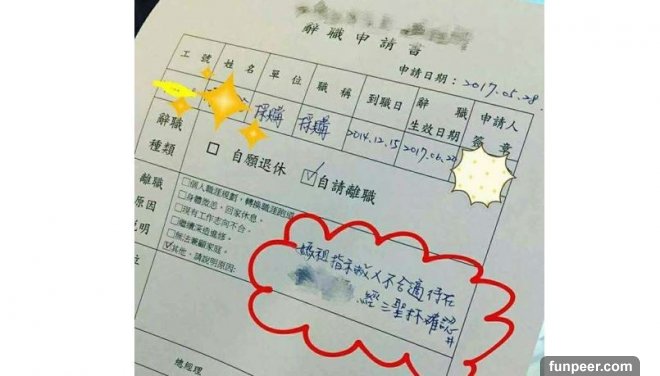 辭職申請書
申請日期:2017.05.28
工號 姓名 單位 職稱 到職日 辭職生效日期 申請人簽章
採購 採購 2014.12.15 2017.06.2
辭職種類 □ 自願退休 ☑自請離職
離職原因說明
□個人職涯規劃,轉換職涯跑道
□身體微恙,回家休息。
□現有工作志向不合。
□繼續深造進修。
□無法兼顧家庭。
☑其他,請說明原因:
媽祖指示敝人不合適待在
經三聖杯確認
總經理
funpeer.com